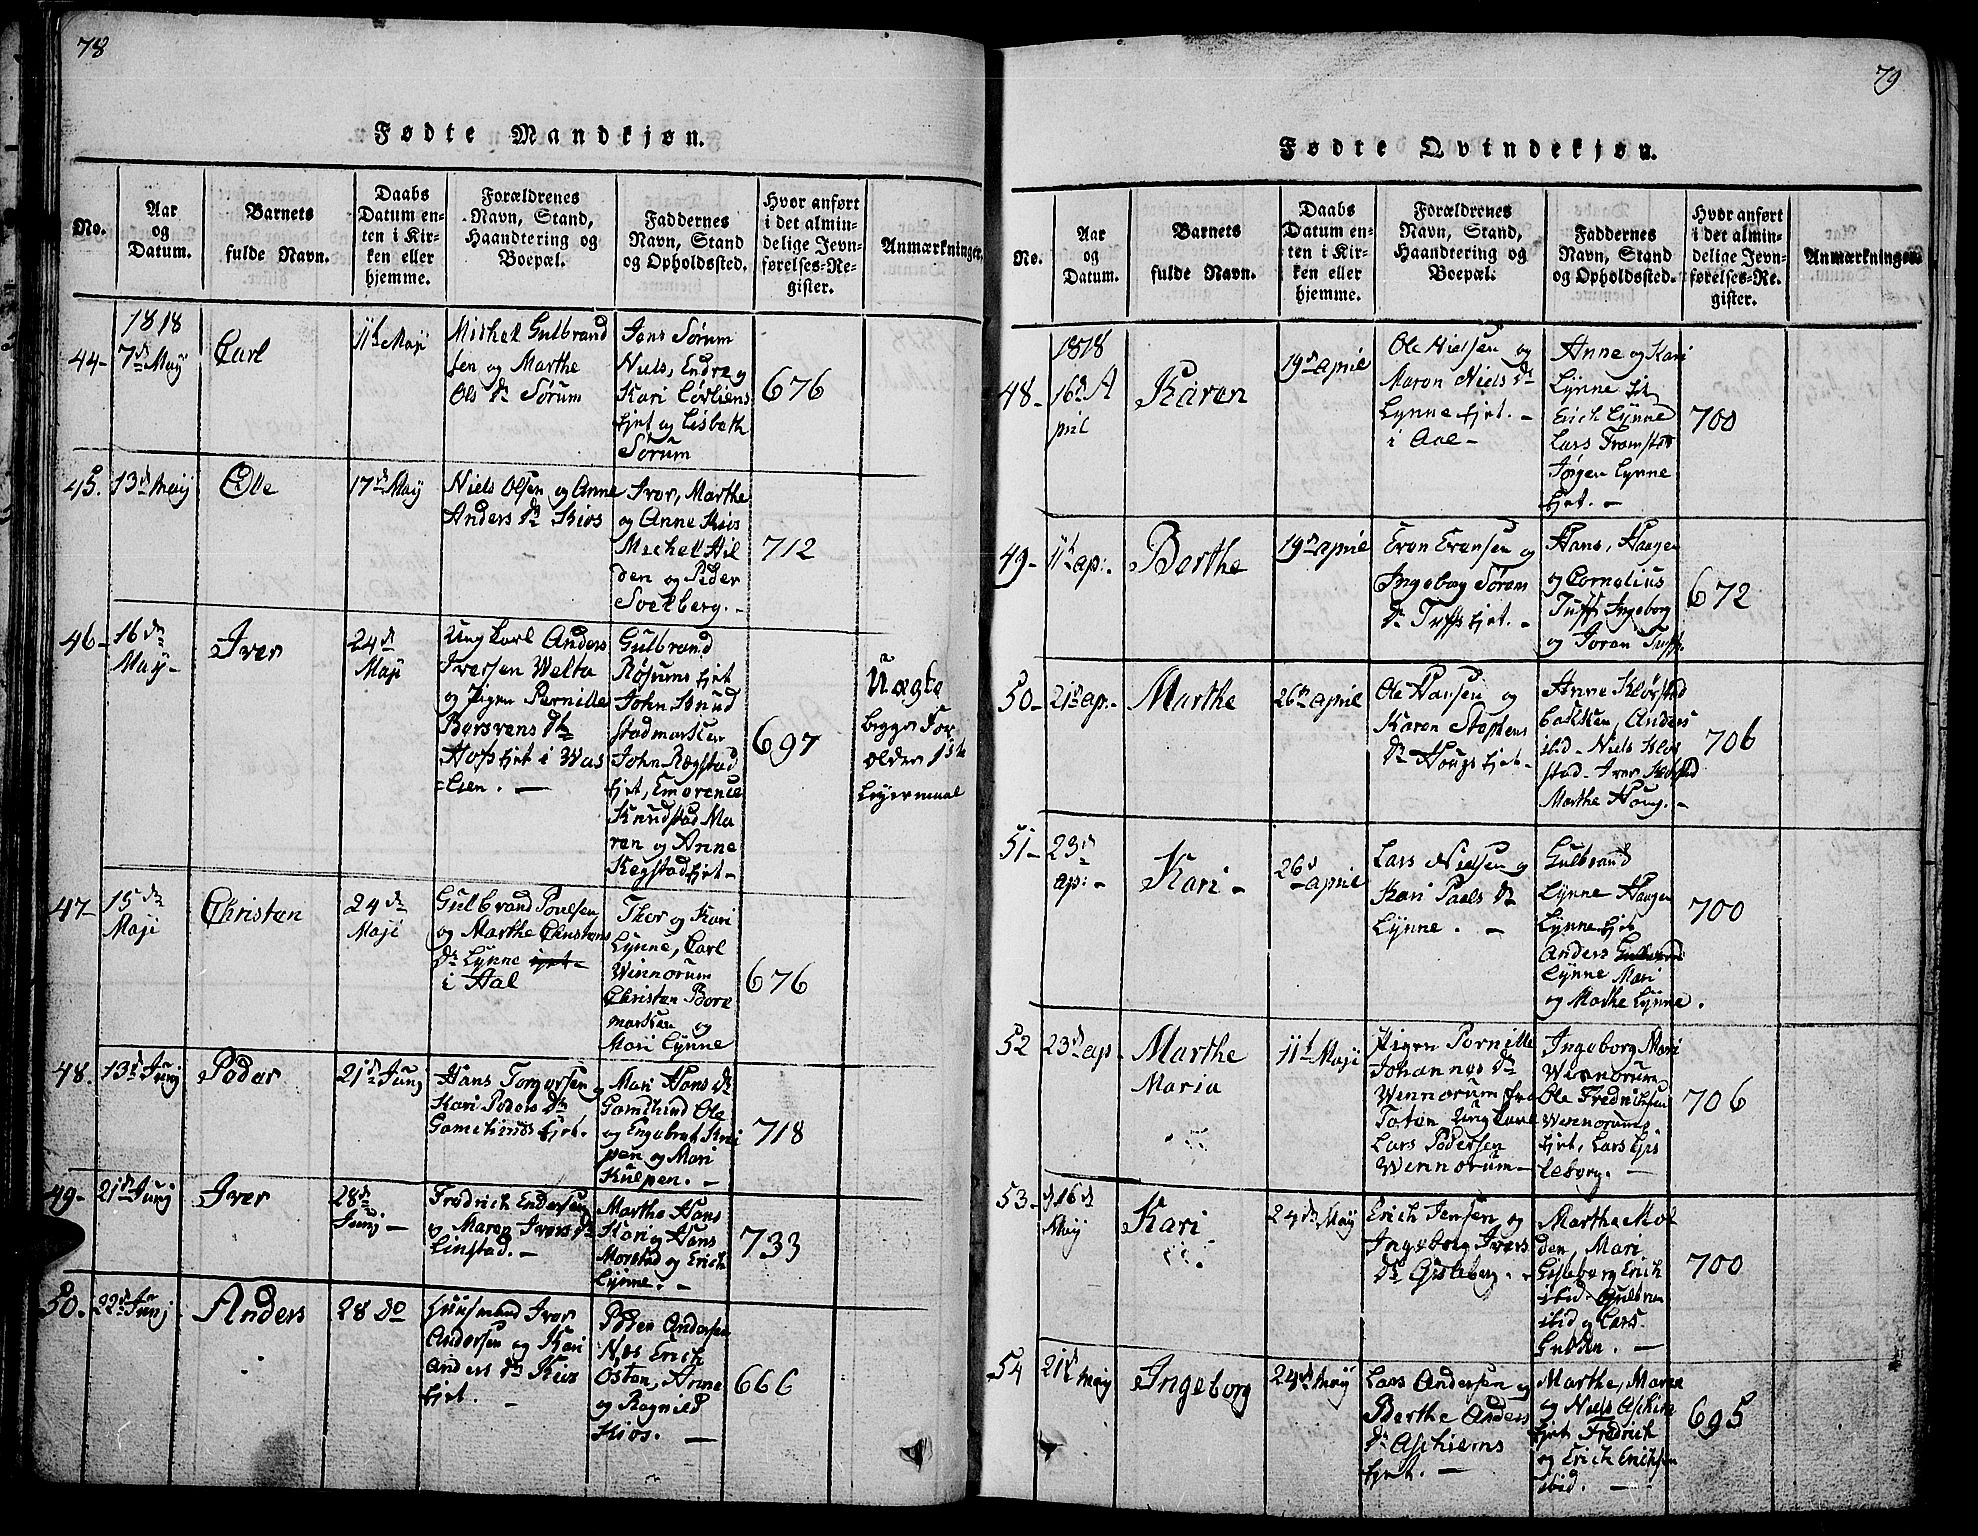 78
Fødte Mandkjøn.
No.
Aar
og
Datum.
Barnets
fulde Navn.
Daabs
Datum en-
ten i Kir-
ken eller
hjemme.
Forældrenes
Navn, Stand,
Haandtering og
Boepæl.
Faddernes
Navn, Stand
og Opholdssted.
Hvor anført
i det almin-
delige Jevn-
førelses-Re-
gister.
Anmærkninger.
1818
44-
7de May
Carl
11t Maji
Michel Gulbrand
sen og Marthe
Ols Dr Sørum
Jens Sørum
Niels, Endre og
Kari
ejet og Lisbeth
Sørum
676
45.
13de May
Ole
17de May
Niels Olsen og Anne
Anders Dr Kios
Iver, Marthe
og Anne Kios
Michel Hil
den og Peder
Soelberg. -
712
46-
16de
May-
Iver
24de
Maji
Ung karl Anders
Iversen Welta
og Pigen Pernille
Hoffs ejet i Was
Gulbrand
Røsums ejet
John Knud
stadmarken
John Rægstad
ejet, Emerence
Knudstad Ma
ren og Anne
Regstad ejet-
697
Uægte
begge For
ældres 1ste
Leyermaal
47-
15de
Maji
Christen
24de
Maji
Gulbrand Poulsen
og Marthe Christens
Dr Lynne ejet-
i Aal
Thor og Kari
Lynne, Carl
Winnorum
Christen Bore
marken og
Mari Lynne
676
48.
13de Junj
Peder
21de Junj
Hans Torgersen og
Kari Peders Dr
ejet.
Mari Hans Dr
Ole
og Engebret
og Mari
Kulpen. -
718
49-
21de Junj
Iver
28de
Junj -
Fredrich Endersen
og Maren Ivers Dr
Linstad. -
Marthe Hans
Kari og Hans
Morstad og Erich
Lynne. -
733
50.
22de Junj
Anders
28 do
Huusmand Iver
Andersen og Kari
Anders Dr Kios
ejet. -
Peder Andersen
Næs Erich
Osten, Anne
og Ragnild
Kios. -
666
79
Fødte Qvindekjøn.
No.
Aar
og
Datum.
Barnets
fulde Navn.
Daabs
Datum en-
ten i Kir-
ken eller
hjemme.
Forældrenes
Navn, Stand,
Haandtering og
Boepæl.
Faddernes
Navn, Stand
og Opholdssted.
Hvor anført
i det almin-
delige Jevn-
førelses-Re-
gister.
Anmærkninger.
1818
48-
16de A
pril
Karen
19de april
Ole Nielsen og
Maren Niels Dr
Lynne ejet. -
i Aal -
Anne og Kari
Lynne
Erich Lynne
Lars
Jørgen Lynne
ejet. -
700
49-
11t ap:-
Berthe
19de april
Even Evensen og
Ingeborg Sørens
Dr Tuffs ejet. -
Hans, Haagen
og Cornelius
Tuff Ingeborg
og Joren Tuff.
672
50-
21de ap:-
Marthe
26de april
Ole Hansen og
Karen Stephens
Dr Hougs ejet-
Anne Klørstad
bakken, Anders
ibid- Niels Klør
stad- Iver Klørstad
Marthe Houg. -
706
51-
23de
ap:-
Kari -
26de april
Lars Nielsen og
Kari Paals Dr
Lynne. -
Gulbrand
Lynne Haagen
Lynne ejet
Anders
Lynne Mari
og Marthe Lynne.
700
52
23de ap
Marthe
Maria
11t Maji
Pigen Pernille
Johannes Dr
Winnorum fra
Toten Ung karl
Lars Pedersen
Winnorum-
Ingeborg Mari
Winnorum
Ole Fredrichsen
Winnorums
ejet, Lars Gis
leborg. -
706
53-
d 16de
May
Kari
24de May
Erich Jensen og
Ingeborg Ivers
Dr Gisleberg. -
Marthe Mol
den, Mari
Gisleborg Erich
ibid- Gulbran
ibid og Lars
Lubben. -
700
54
21de May
Ingeborg
24de May
Lars Andersen og
Berthe Anders
Dr Aschiems
ejet. -
Marthe, Maria
og Niels Aschiem
ejet Fredrich
og Erich Erichsen
ibid. -
695